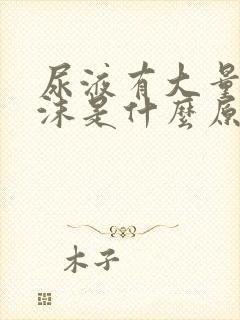 尿液有大量
沫是什麼原
木子